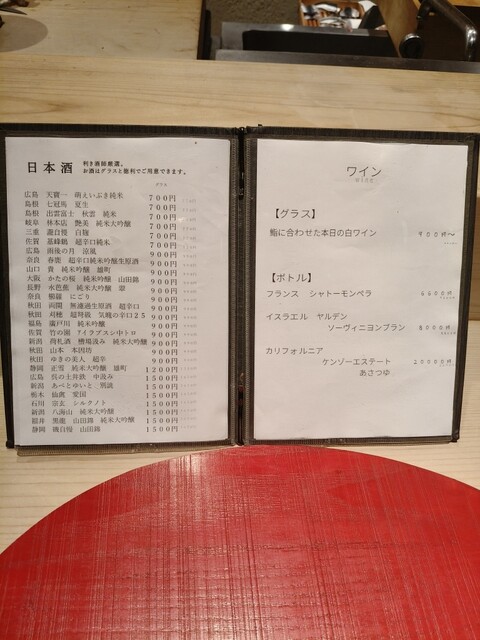 日本酒
利き酒師厳選。
お酒はグラスと徳利でご用意できます。
グラス
広島 天寶一 萌えいぶき純米 700円
島根 七冠馬 夏生 700円
島根 出雲富士 秋雲 純米 700円
岐阜 林本店 艶美 純米大吟醸 700円
三重 遊自慢 白麹 700円
佐賀 基峰鶴 超辛口純米 700円
広島 雨後の月 涼風 900円
奈良 春鹿 超辛口純米吟醸生原酒 900円
山口 貴 純米吟醸 雄町 900円
大阪 かたの桜 純米吟醸 山田錦 900円
長野 水芭蕉 純米大吟醸 翠 900円
奈良 櫛羅 にごり 900円
秋田 両関 無濾過生原酒 超辛口 900円
秋田 刈穂 超弩級 気魄の辛口25 900円
福島 廣戸川 純米吟醸 900円
佐賀 竹の園 900円
新潟 荷札酒 槽場汲み 純米大吟醸 900円
秋田 山本 本因坊 900円
秋田 ゆきの美人 超辛 900円
静岡 正雪 純米大吟醸 雄町 1200円
広島 呉の土井鉄 中汲み 1500円
新潟 あべとゆいと 別誂 1500円
栃木 仙禽 愛国 1500円
石川 宗玄 シルクノト 1500円
新潟 八海山 純米大吟醸 1500円
福井 黒龍 山田錦 純米大吟醸 1500円
静岡 磯自慢 山田錦 1500円
ワイン
【グラス】
鮨に合わせた本日の白ワイン 900円〜
【ボトル】
フランス シャトーモンペラ 6600円
イスラエル ヤルデン
ソーヴィニヨンブラン 8000円
カリフォルニア
ケンゾーエステート 20000円
あさつゆ